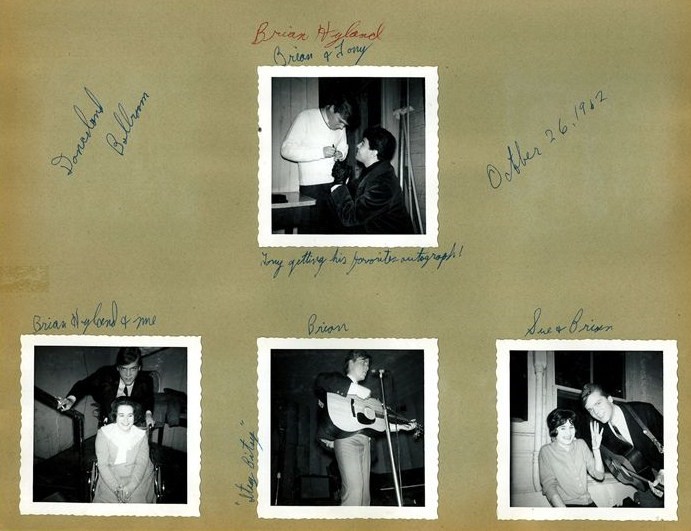 Brian Hyland
Brian & Tony
Danceland
Ballroom
October 26, 1962
Tony getting his favorites autograph!
Brian Hyland & me
Brian
Sue & Brian